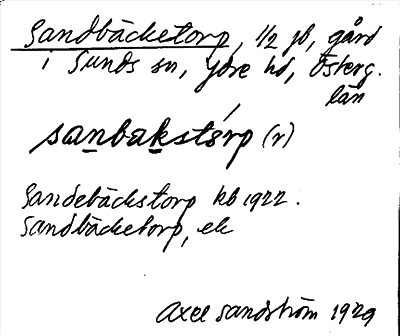 Sandbäcketorp, 1/2 jb, gård
i Sunds sn, Ydre hd, Österg.
län
sanbakstórp (r)
Sandebäckstorp kb 1922.
Sandbäcketorp, ek
Axel Sandström 1929